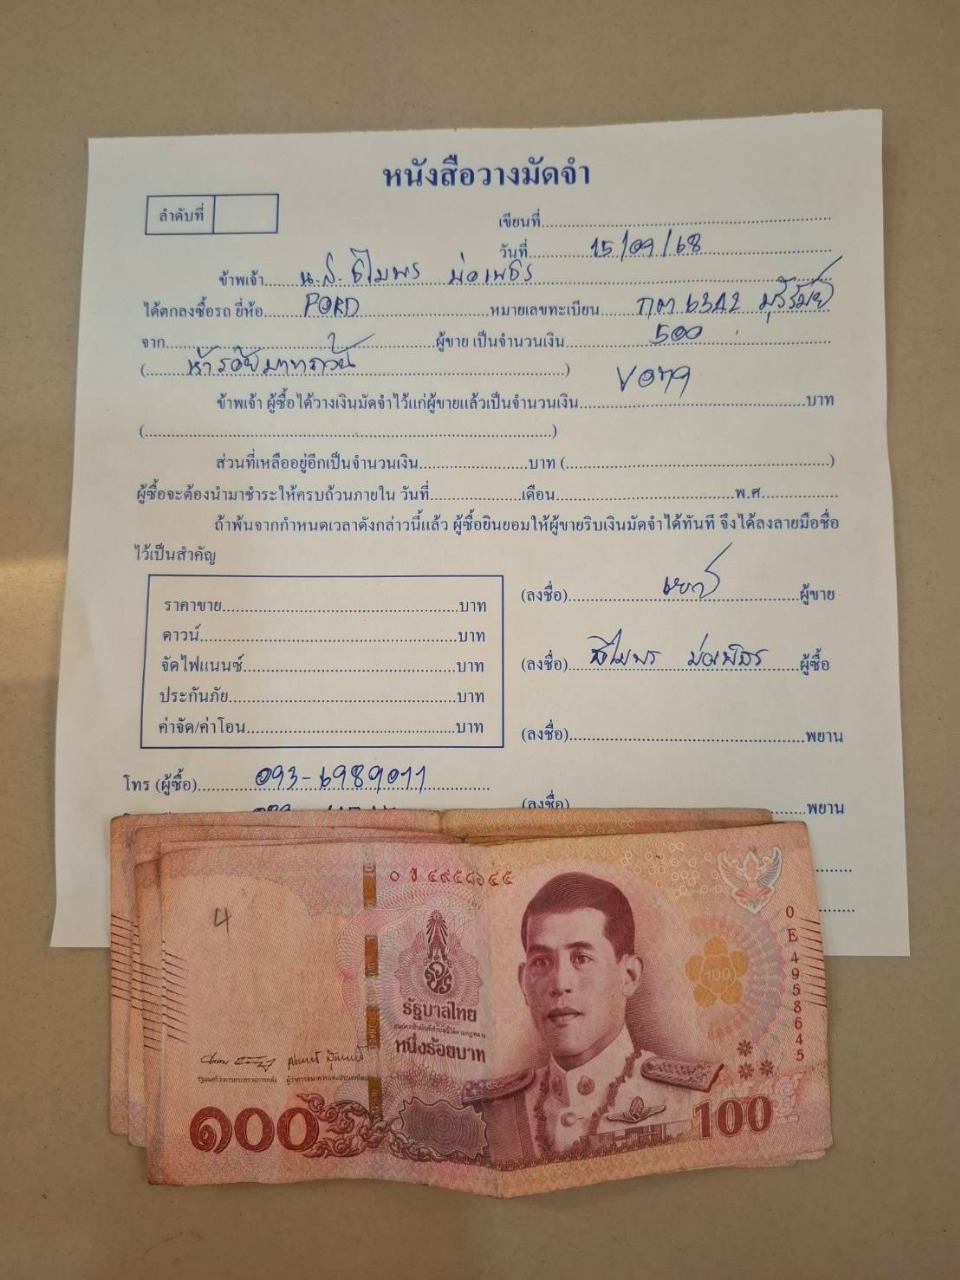 หนังสือวางมัดจำ
ลำดับที่
เขียนที่
วันที่ 15/09/68
ข้าพเจ้า น.ส. ธิไมพร
ได้ตกลงซื้อรถ ยี่ห้อ FORD หมายเลขทะเบียน 6342 บุรีรัมย์
จาก ผู้ขาย เป็นจำนวนเงิน 500
(ห้าร้อยบาทถ้วน)
ข้าพเจ้า ผู้ซื้อได้วางเงินมัดจำไว้แก่ผู้ขายแล้วเป็นจำนวนเงิน บาท
( )
ส่วนที่เหลืออยู่อีกเป็นจำนวนเงิน บาท ( )
ผู้ซื้อจะต้องนำมาชำระให้ครบถ้วนภายใน วันที่ เดือน พ.ศ.
ถ้าพ้นจากกำหนดเวลาดังกล่าวนี้แล้ว ผู้ซื้อยินยอมให้ผู้ขายริบเงินมัดจำได้ทันที จึงได้ลงลายมือชื่อ
ไว้เป็นสำคัญ
ราคาขาย บาท
ดาวน์ บาท
จัดไฟแนนซ์ บาท
ประกันภัย บาท
ค่าจัด/ค่าโอน บาท
(ลงชื่อ) ผู้ขาย
(ลงชื่อ) ผู้ซื้อ
(ลงชื่อ) พยาน
โทร (ผู้ซื้อ) 093-6989011
(ลงชื่อ) พยาน
๐ ข ๔๙๕๘๖๔๕
4
0 E 4958645
รัฐบาลไทย
หนึ่งร้อยบาท
๑๐๐
100
100